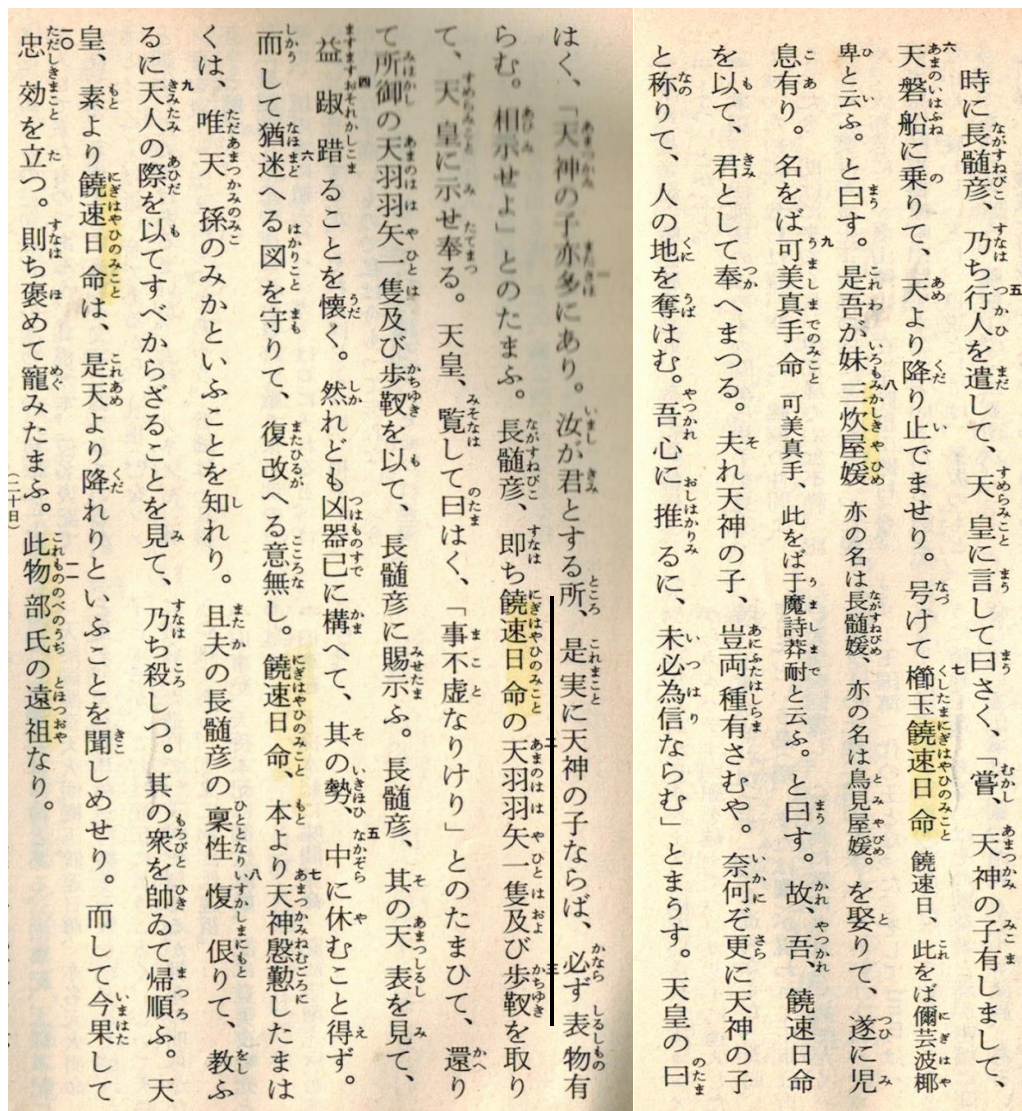 時に長髄彦、乃ち行人を遣して、天皇に言して曰さく、「嘗、天神の子有しまして、
天磐船に乗りて、天より降り止でませり。号けて櫛玉饒速日命 饒速日、此をば儞芸波椰
卑と云ふ。と曰す。是吾が妹三炊屋媛 亦の名は長髄媛、亦の名は鳥見屋媛。を娶りて、遂に児
息有り。名をば可美真手命 可美真手、此をば于魔詩莽耐と云ふ。と曰す。故、吾、饒速日命
を以て、君として奉へまつる。夫れ天神の子、豈両種有さむや。奈何ぞ更に天神の子
と称りて、人の地を奪はむ。吾心に推るに、未必為信ならむ」とまうす。天皇の曰
はく、「天神の子亦多にあり。汝が君とする所、是実に天神の子ならば、必ず表物有
らむ。相示せよ」とのたまふ。長髄彦、即ち饒速日命の天羽羽矢一隻及び歩靫を取り
て、天皇に示せ奉る。天皇、覧して曰はく、「事不虚なりけり」とのたまひて、還り
て所御の天羽羽矢一隻及び歩靫を以て、長髄彦に賜示ふ。長髄彦、其の天表を見て、
益踧踖ることを懐く。然れども凶器已に構へて、其の勢、中に休むこと得ず。
而して猶迷へる図を守りて、復改へる意無し。饒速日命、本より天神慇懃したまは
くは、唯天孫のみかといふことを知れり。且夫の長髄彦の稟性愎佷りて、教ふ
るに天人の際を以てすべからざることを見て、乃ち殺しつ。其の衆を帥ゐて帰順ふ。天
皇、素より饒速日命は、是天より降れりといふことを聞しめせり。而して今果して
忠効を立つ。則ち褒めて寵みたまふ。此物部氏の遠祖なり。
(二十日)